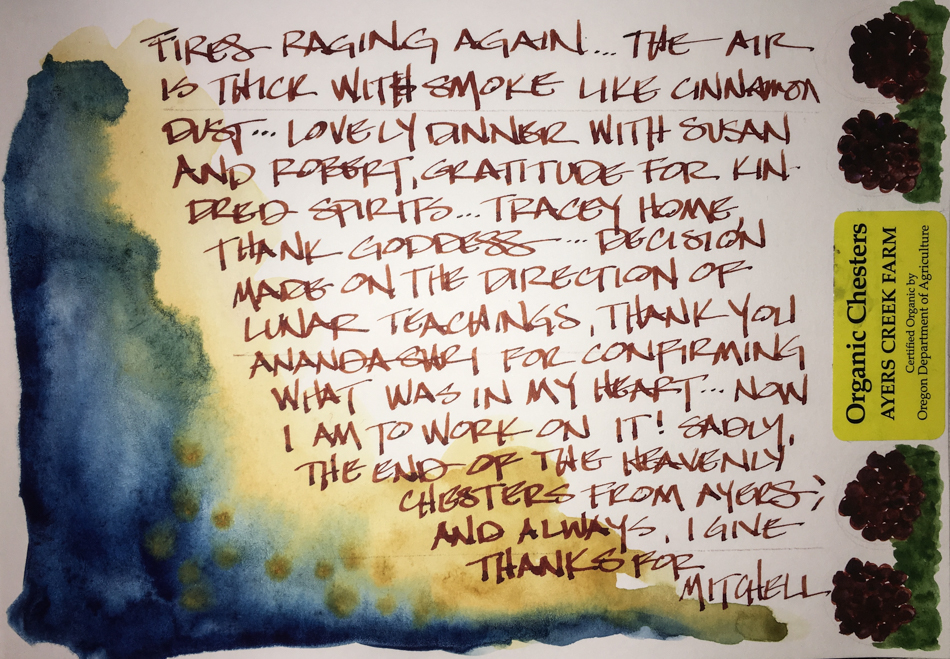 FIRES RAGING AGAIN... THE AIR
IS THICK WITH SMOKE LIKE CINNAMON
DUST... LOVELY DINNER WITH SUSAN
AND ROBERT, GRATITUDE FOR KIN-
DRED SPIRITS... TRACEY HOME,
THANK GODDESS ... DECISION
MADE ON THE DIRECTION OF
LUNAR TEACHINGS, THANK YOU
ANANDASHRI FOR CONFIRMING
WHAT WAS IN MY HEART... NOW
I AM TO WORK ON IT! SADLY,
THE END OF THE HEAVENLY
CHESTERS FROM AYERS;
AND ALWAYS, I GIVE
THANKS FOR
MITCHELL
Organic Chesters
AYERS CREEK FARM
Certified Organic by
Oregon Department of Agriculture